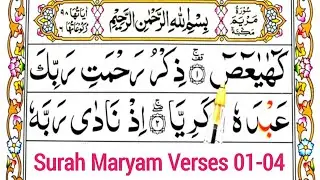 سُورَةُ مَرْيَمَ مَكِّيَّةٌ
بِسْمِ اللّٰهِ الرَّحْمٰنِ الرَّحِيْمِ
اٰيَاتُهَا ٩٨
كٓهٰيٰعٓصٓ ۚ ١ ذِكْرُ رَحْمَتِ رَبِّكَ
عَبْدَهٗ كَرِيَّا ٢ اِذْ نَادٰى رَبَّهٗ
Surah Maryam Verses 01-04